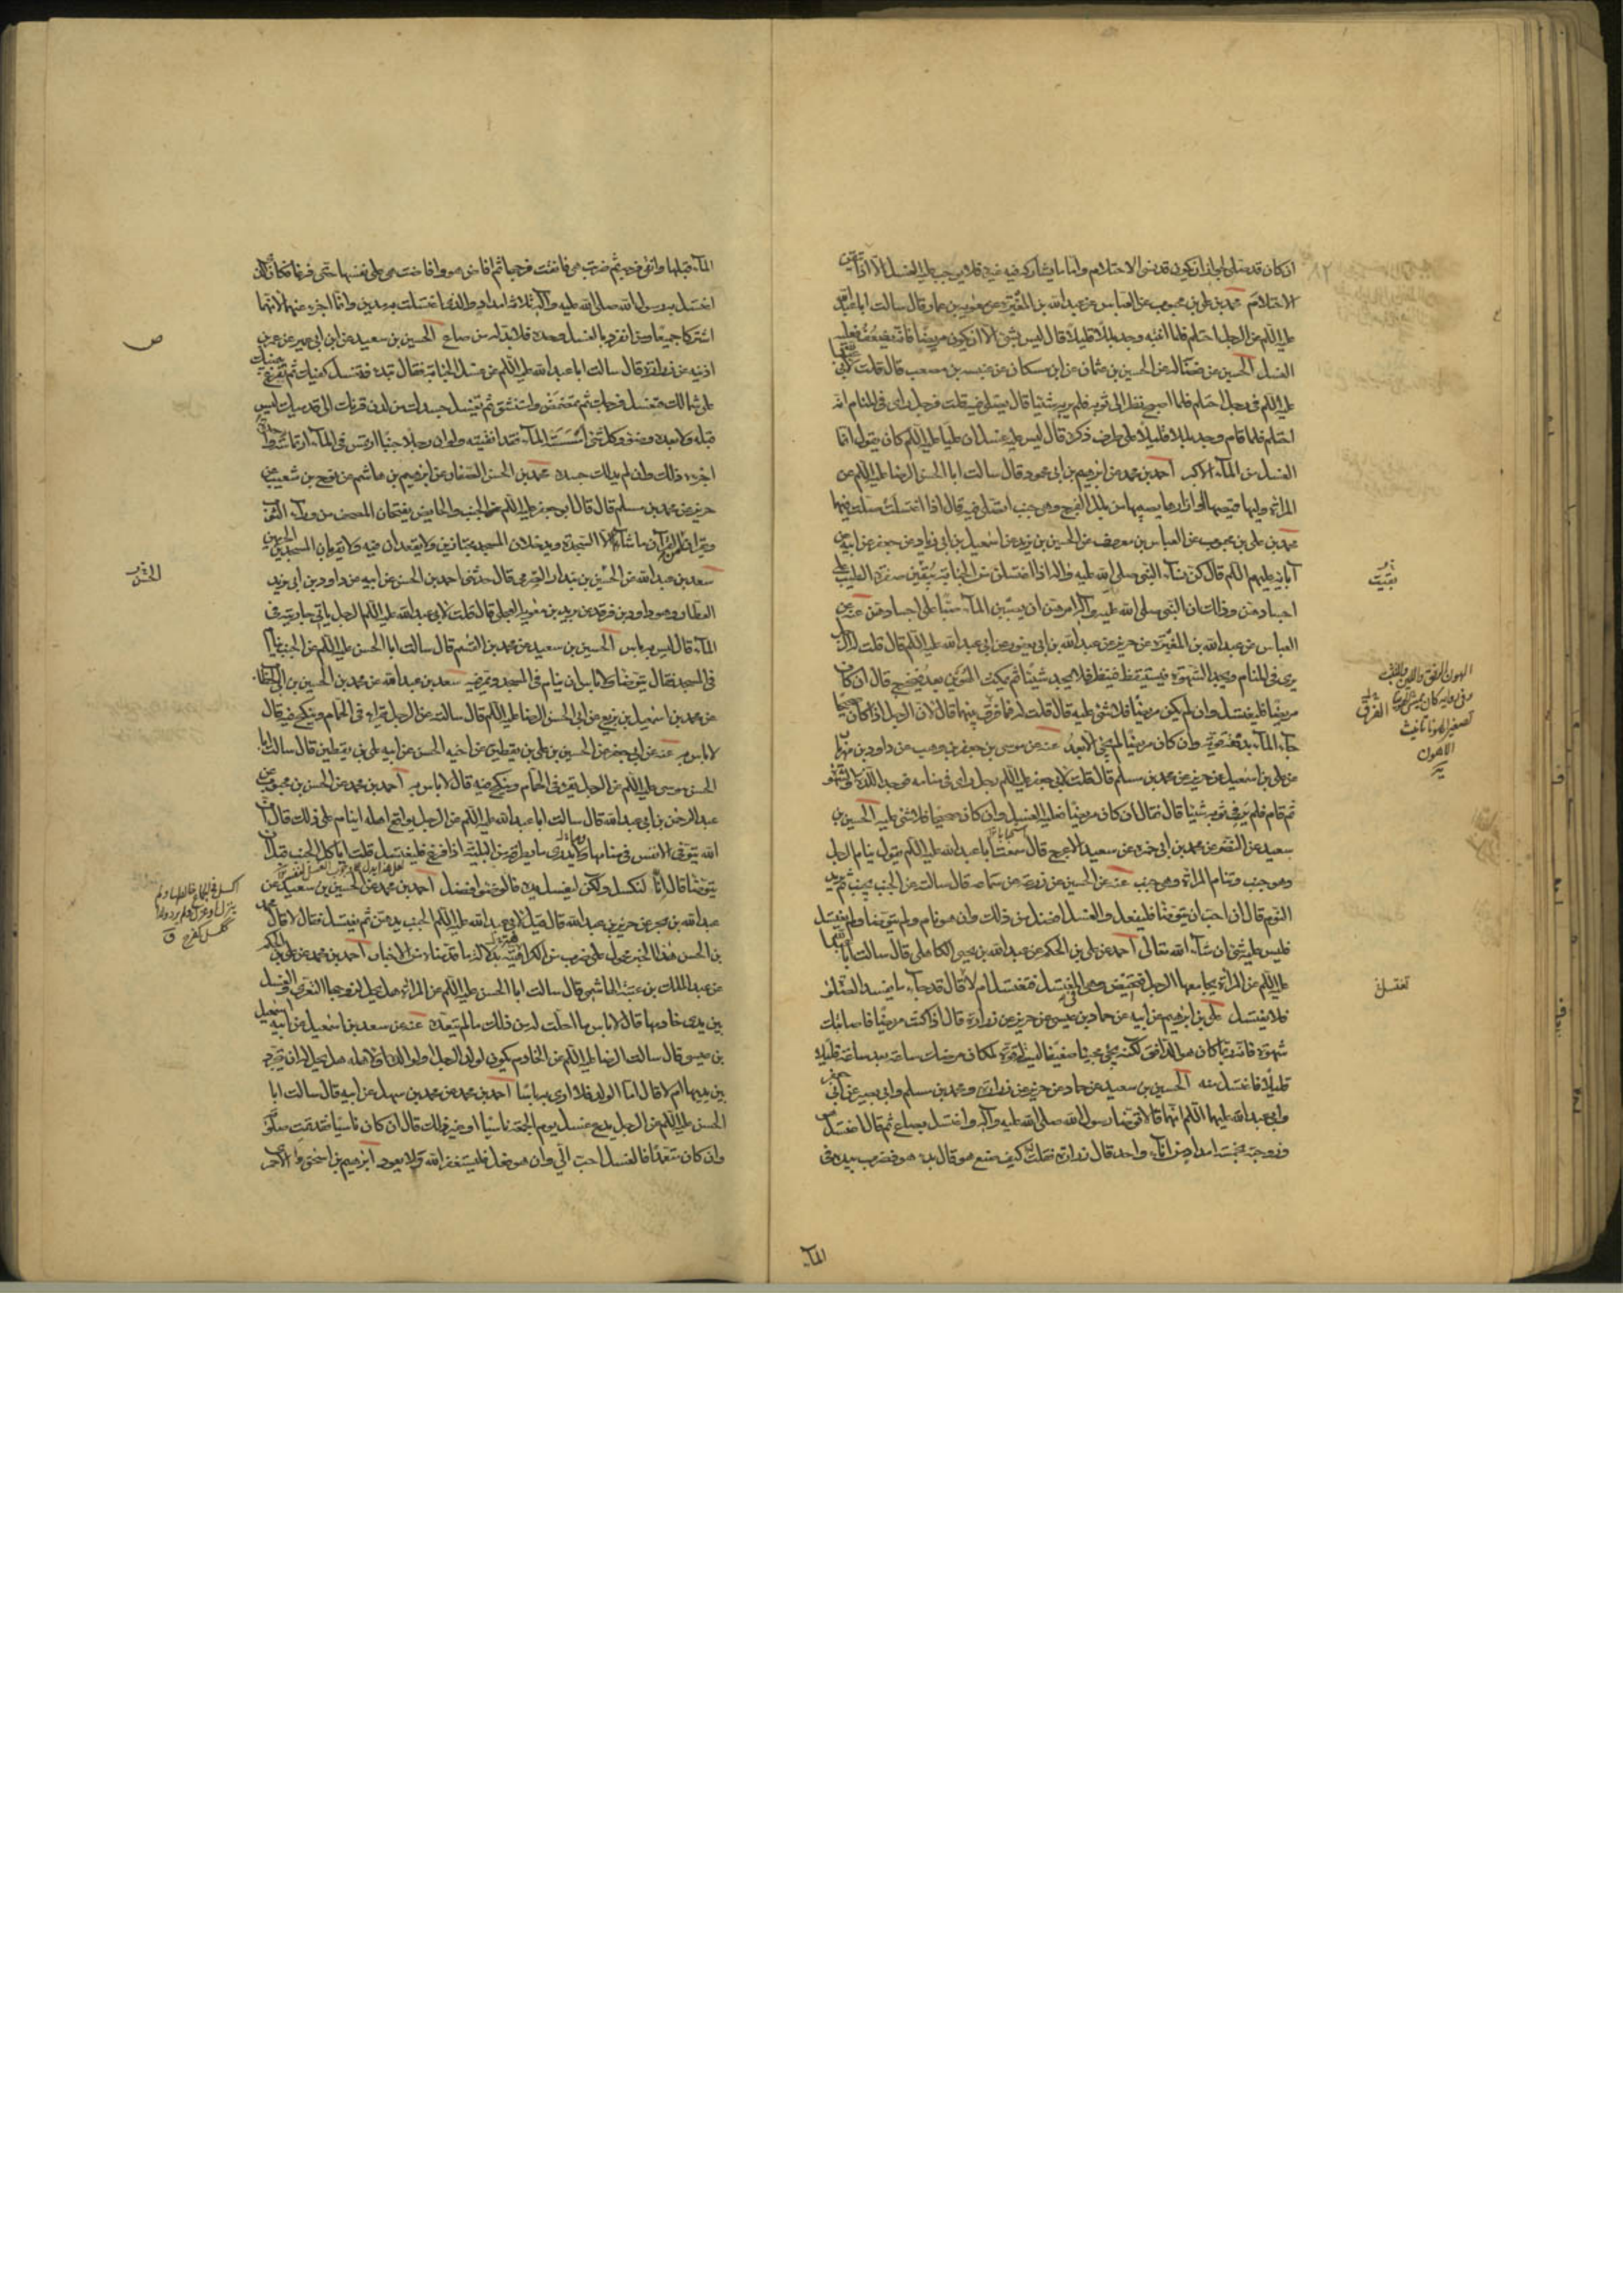 ان كان قد صلى لجواز ان يكون قد نسى الاحتلام واما ما يشاركه فيه غيره فلا يوجب عليه الغسل الا اذا تيقن
الاحتلام محمد بن علي بن محبوب عن العباس عن عبد الله بن المغيرة عن معوية بن عمار قال سالت ابا عبد الله
عليه السلم عن الرجل احتلم فلما انتبه وجد بللا قليلا قال ليس بشئ الا ان يكون مريضا فانه يضعف فعليه
الغسل الحسين عن فضالة عن الحسين بن عثمان عن ابن مسكان عن عنبسة بن مصعب قال قلت لابي عبد الله
عليه السلم رجل احتلم فلما اصبح نظر الى ثوبه فلم ير به شيئا قال يصلي فيه قلت فرجل راى في المنام انه
احتلم فلما قام وجد بللا قليلا على طرف ذكره قال ليس عليه غسل ان عليا عليه السلم كان يقول انما
الغسل من الماء الاكبر احمد بن محمد عن ابراهيم بن ابي محمود قال سالت ابا الحسن الرضا عليه السلم عن
المراة وليها قميصها او ازارها يصيبها من بلل الفرج وهي جنب اتصلي فيه قال اذا اغتسلت صلت فيهما
محمد بن علي بن محبوب عن العباس بن معروف عن الحسين بن يزيد عن اسمعيل بن ابي زياد عن جعفر عن ابيه عن
آبائه عليهم السلم قال كن نساء النبي صلى الله عليه واله اذا اغتسلن من الجنابة يبقين صفرة الطيب على
اجسادهن وذلك ان النبي صلى الله عليه وآله امرهن ان يصببن الماء صبا على اجسادهن عنه عن
العباس عن عبد الله بن المغيرة عن حريز عن عبد الله بن ابي يعفور عن ابي عبد الله عليه السلم قال قلت له الرجل
يرى في المنام ويجد الشهوة فيستيقظ فينظر فلا يجد شيئا ثم يمكث الهوين بعد فيخرج قال ان كان
مريضا فليغتسل وان لم يكن مريضا فلا شئ عليه قال قلت له فما فرق بينهما قال لان الرجل اذا كان صحيحا
جاء الماء بدفعة قوية وان كان مريضا لم يجئ الا بعد عنه عن موسى بن جعفر بن وهب عن داود بن مهزيار
عن علي بن اسمعيل عن حريز عن محمد بن مسلم قال قلت لابي جعفر عليه السلم رجل راى في منامه فوجد اللذة والشهوة
ثم قام فلم ير في ثوبه شيئا قال فقال ان كان مريضا فعليه الغسل وان كان صحيحا فلا شئ عليه الحسين بن
سعيد عن النضر عن محمد بن ابي حمزة عن سعيد الاعرج قال سمعت ابا عبد الله عليه السلم يقول ينام الرجل
وهو جنب وتنام المراة وهي جنب عنه عن الحسين عن زرعة عن سماعة قال سالته عن الجنب يجنب ثم يريد
النوم قال ان احب ان يتوضا فليفعل والغسل افضل من ذلك وان هو نام ولم يتوضا ولم يغتسل
فليس عليه شئ ان شاء الله تعالى احمد عن علي بن الحكم عن عبد الله بن يحيى الكاهلي قال سالت ابا عبد الله
عليه السلم عن المراة يجامعها الرجل فتحيض وهي في المغتسل فتغتسل ام لا قال قد جاء ما يفسد الصلوة
فلا تغتسل علي بن ابراهيم عن ابيه عن حماد بن عيسى عن حريز عن زرارة قال اذا كنت مريضا فاصابتك
شهوة فانه ربما كان هو الدافق لكنه يجئ مجيئا ضعيفا ليس له قوة لمكان مرضك ساعة بعد ساعة قليلا
قليلا فاغتسل منه الحسين بن سعيد عن حماد عن حريز عن زرارة ومحمد بن مسلم وابي بصير عن ابي جعفر
وابي عبد الله عليهما السلم انهما قالا توضا رسول الله صلى الله عليه وآله واغتسل بصاع ثم قال اغتسل هو
وزوجته بخمسة امداد من اناء واحد قال زرارة فقلت كيف صنع هو قال بدا هو فضرب بيده في
الماء
تعتسل
الماء قبلها وانقى فرجه ثم ضربت هي فانقت فرجها ثم افاض هو وافاضت هي على نفسها حتى فرغا فكان الذى
اغتسل به رسول الله صلى الله عليه وآله ثلاثة امداد والذى اغتسلت به مدين وانما اجزء عنهما لانهما
اشتركا جميعا ومن انفرد بالغسل وحده فلا بد له من صاع الحسين بن سعيد عن ابن ابي عمير عن عمر بن
اذينة عن زرارة قال سالت ابا عبد الله عليه السلم عن غسل الجنابة فقال تبدء فتغسل كفيك ثم تفرغ بيمينك
على شمالك فتغسل فرجك ثم تمضمض واستنشق ثم تغسل جسدك من لدن قرنك الى قدميك ليس
قبله ولا بعده وضوء وكل شئ امسسته الماء فقد انقيته ولو ان رجلا جنبا ارتمس في الماء ارتماسة واحدة
اجزءه ذلك وان لم يدلك جسده محمد بن الحسن الصفار عن ابراهيم بن هاشم عن نوح بن شعيب عن
حريز عن محمد بن مسلم قال قال ابو جعفر عليه السلم الجنب والحايض يفتحان المصحف من وراء الثوب
ويقران من القرآن ما شاء الا السجدة ويدخلان المسجد مجتازين ولا يقعدان فيه ولا يقربان المسجدين الحرمين
سعد بن عبد الله عن الحسين بن بندار الصرمي قال حدثني احمد بن الحسن عن ابيه عن داود بن ابي يزيد
العطار وهو داود بن فرقد عن بريد بن معوية العجلي قال قلت لابي عبد الله عليه السلم الرجل ياتي جاريته في
الماء قال ليس به باس الحسين بن سعيد عن محمد بن القسم قال سالت ابا الحسن عليه السلم عن الجنب ينام
في المسجد فقال يتوضا ولا باس ان ينام في المسجد ويمر فيه سعد بن عبد الله عن محمد بن الحسين بن ابي الخطاب
عن محمد بن اسمعيل بن بزيع عن ابي الحسن الرضا عليه السلم قال سالته عن الرجل يقرء في الحمام وينكح فيه قال
لا باس به عنه عن ابي جعفر عن الحسين بن علي بن يقطين عن اخيه الحسن عن ابيه علي بن يقطين قال سالت ابا
الحسن موسى عليه السلم عن الرجل يقرء في الحمام وينكح فيه قال لا باس به احمد بن محمد عن الحسن بن محبوب عن
عبد الرحمن بن ابي عبد الله قال سالت ابا عبد الله عليه السلم عن الرجل يواقع اهله اينام على ذلك قال ان
الله يتوفى الانفس في منامها ولا يدرى ما يطرقه من البلية اذا فرغ فليغتسل قلت اياكل الجنب قبل ان
يتوضا قال انا لنكسل ولكن ليغسل يده فالوضوء افضل احمد بن محمد عن الحسين بن سعيد عن
عبد الله بن بحر عن حريز قال قيل لابي عبد الله عليه السلم الجنب يدهن ثم يغتسل فقال لا قال محمد
بن الحسن هذا الخبر محمول على ضرب من الكراهية بدلالة ما قدمناه من الاخبار احمد بن محمد عن علي بن الحكم
عن عبد الملك بن عتبة الهاشمي قال سالت ابا الحسن عليه السلم عن المراة هل يحل لزوجها التعرى والغسل
بين يدى خادمها قال لا باس ما احلت له من ذلك ما لم يتعده عنه عن سعد بن اسمعيل عن ابيه اسمعيل
بن عيسى قال سالت الرضا عليه السلم عن الخادم يكون لولد الرجل او لوالده او لاهله هل يحل له ان يتجرد
بين يديها ام لا قال اما الولد فلا ارى به باسا احمد بن محمد عن محمد بن سهل عن ابيه قال سالت ابا
الحسن عليه السلم عن الرجل يدع غسل يوم الجمعة ناسيا او غير ذلك قال ان كان ناسيا فقد تمت صلوته
وان كان متعمدا فالغسل احب الي وان هو فعل فليستغفر الله ولا يعود ابراهيم بن اسحق الاحمر
ص